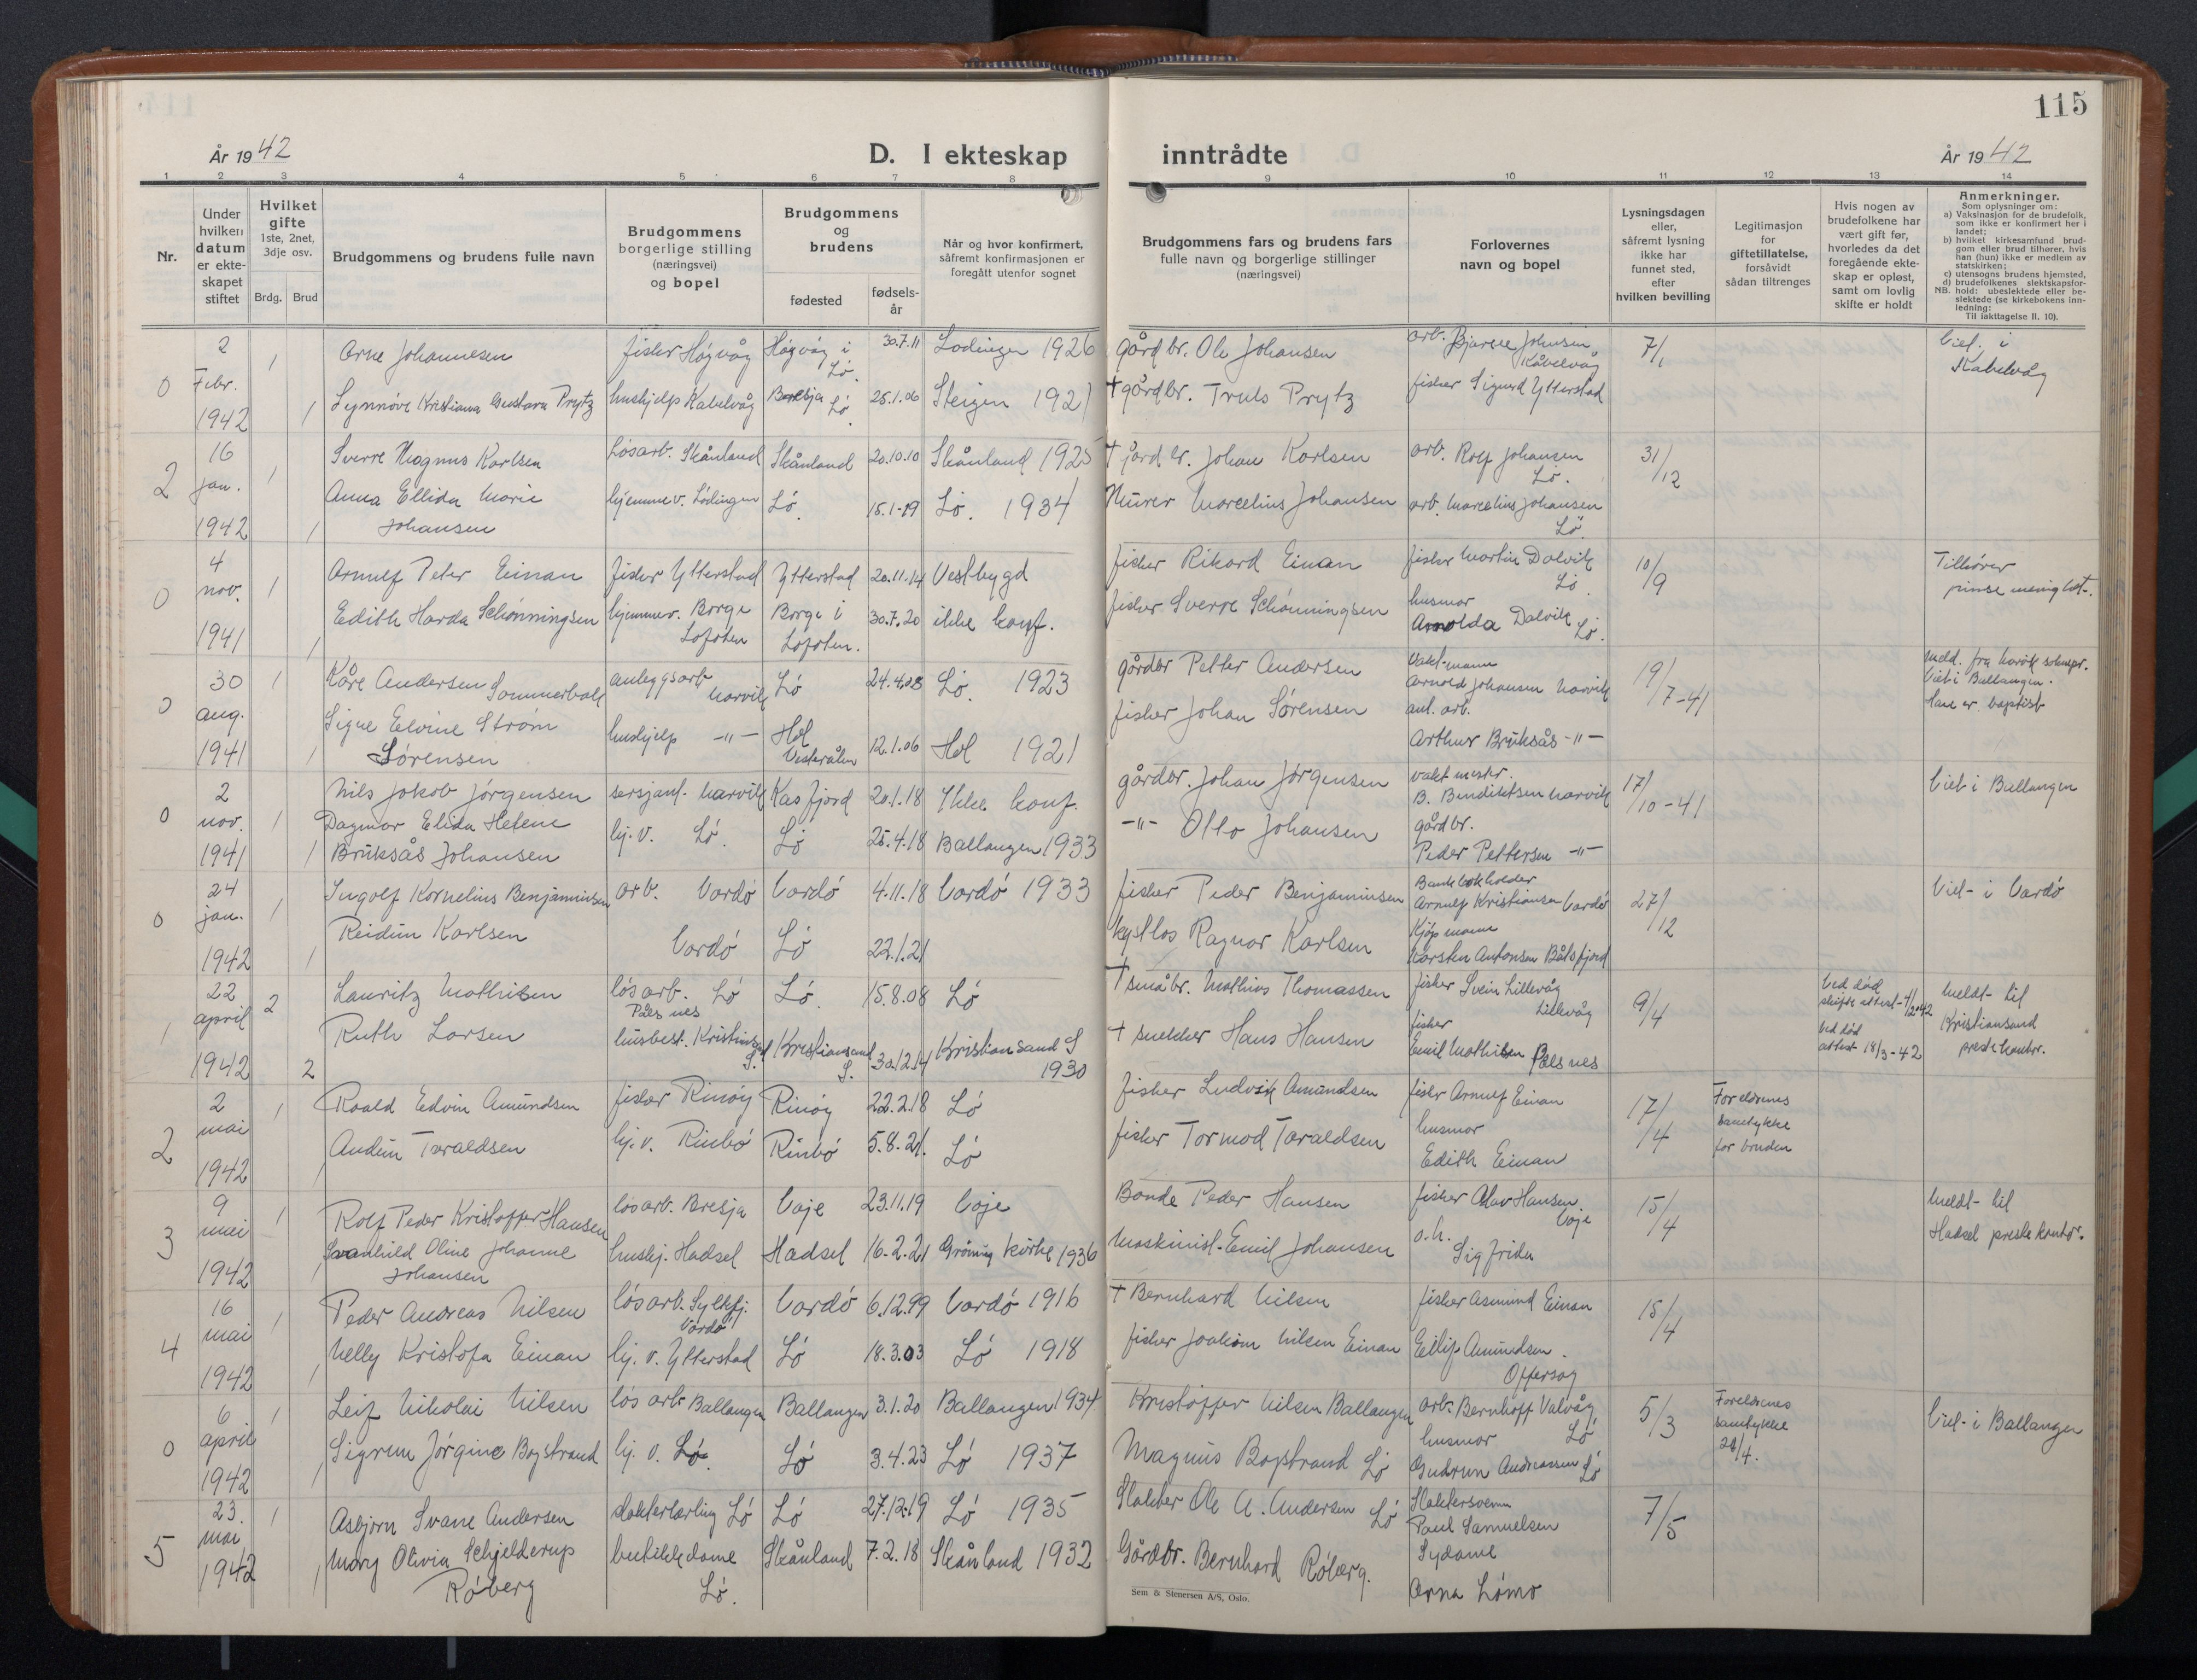 115
År 1942
D. I ekteskap inntrådte
År 1942
1 2 3 4 5 6 7 8 9 10 11 12 13 14
Nr.
Under hvilken datum er ekteskapet stiftet
Hvilket gifte
1ste, 2net, 3dje osv.
Brdg. Brud
Brudgommens og brudens fulle navn
Brudgommens borgerlige stilling (næringsvei) og bopel
Brudgommens og brudens
fødested
fødselsår
Når og hvor konfirmert, såfremt konfirmasjonen er foregått utenfor sognet
Brudgommens fars og brudens fars fulle navn og borgerlige stillinger (næringsvei)
Forlovernes navn og bopel
Lysningsdagen eller, såfremt lysning ikke har funnet sted, efter hvilken bevilling
Legitimasjon for giftetillatelse, forsåvidt sådan tiltrenges
Hvis nogen av brudefolkene har vært gift før, hvorledes da det foregående ekteskap er opløst, samt om lovlig skifte er holdt
Anmerkninger.
Som oplysninger om:
a) Vaksinasjon for de brudefolk, som ikke er konfirmert her i landet;
b) hvilket kirkesamfund brudgom eller brud tilhører, hvis han (hun) ikke er medlem av statskirken;
c) utensogns brudens hjemsted,
d) brudefolkenes slektskapsforhold: ubeslektede eller beslektede (se kirkebokens innledning:
NB.
Til iakttagelse II. 10).
0 2 Febr. 1942 1 Arne Johannesen fisker Høgvåg Høgvåg i Lø. 30.7.11 Lødingen 1926 gårdbr. Ole Johansen arb. Bjarne Johnsen Kåvelvåg 7/1 Viet. i Kabelvåg
1 Synnøve Kristiana Gustava Prytz hushjelp Kabelvåg Bresja Lø. 25.1.06 Steigen 1921 † gårdbr. Truls Prytz fisker Sigurd Ytterstad
2 16 jan. 1942 1 Sverre Magnus Karlsen Løsarb. Skånland Skånland 20.10.10 Skånland 1925 † gårdbr. Johan Karlsen arb. Rolf Johansen Lø. 31/12
1 Anna Ellida Marie Johansen hjemmev. Lødingen Lø. 15.1-19 Lø. 1934 Murer Marcelius Johansen arb. Marcelius Johansen Lø
0 4 nov. 1941 1 Arnulf Peter Einan fisker Ytterstad Ytterstad 20.11.14 Vestbygd fisker Rikard Einan fisker Martin Dalvik Lø. 10/9 Tilhører pinse menighet.
1 Edith Harda Schønningsen hjemmev. Borge Lofoten Borge i Lofoten. 30.7.20 ikke konf. fisker Sverre Schønningsen husmor Arnolda Dalvik Lø.
0 30 aug. 1941 1 Kåre Andersen Sommerbakk anleggsarb Narvik Lø 24.4.08 Lø. 1923 gårdbr Petter Andersen Vaktmann Arnold Johansen Narvik 19/7-41 Meld. fra Narvik soknepr. Viet i Ballangen. Han er baptist
1 Signe Elvine Strøm Sørensen hushjelp -"- Hol Vesterålen 12.1.06 Hol 1921 fisker Johan Sørensen anl. arb. Arthur Bruksås -"-
0 2 nov. 1941 1 Nils Jakob Jørgensen sersjant Narvik Kasfjord 20.1.18 Ikke konf. gårdbr. Johan Jørgensen vaktmestr. B. Bendiktsen Narvik 17/10-41 Viet i Ballangen
1 Dagmar Elida Helene Bruksås Johansen hj. v. Lø. Lø 25.4.18 Ballangen 1933 -"- Otto Johansen gårdbr. Peder Pettersen -"-
0 24 jan. 1942 1 Ingolf Kornelius Benjaminsen arb. Vardø Vardø 4.11.18 Vardø 1933 fisker Peder Benjaminsen Bankbokholder Arnulf Kristiansen Vardø 27/12 Viet i Vardø
1 Reidun Karlsen Vardø Lø 22.1.21 Ragnar Karlsen Kjøpmann Karsten Antonsen Båtsfjord
1 22 april 1942 2 Lauritz Mathisen løsarb. Lø Pålsnes Lø. 15.8.08 Lø † småbr. Mathias Thomassen fisker Svein Lillevåg Lillevåg 9/4 Ved død skifte attest Meldt til Kristiansand prestekontor.
2 Ruth Larsen husbest. Kristiansand S. Kristiansand S. 30.12.14 Kristiansand S 1930 † snekker Hans Hansen fisker Emil Mathisen Pålsnes Ved død attest 18/3-42
2 2 mai 1942 1 Roald Edvin Amundsen fisker Rinøy Rinøy 22.2.18 Lø fisker Ludvik Amundsen fisker Arnulf Einan 17/4 Foreldrenes samtykke for bruden
1 Audun Taraldsen hj. v. Rinbø Rinbø 5.8.21. Lø fisker Tormod Taraldsen husmor Edith Einan
3 9 mai 1942 1 Rolf Peder Kristoffer Hansen løsarb. Bresja Voje 23.11.19 Voje Bonde Peder Hansen fisker Olav Hansen Voje 15/4 Meldt til Hadsel prestekontor.
1 Svanhild Oline Johanne Johansen hushj. Hadsel Hadsel 16.2.21 kirke 1936 Maskinist Emil Johansen o.h. Sigfrida
4 16 mai 1942 1 Peder Andreas Nilsen løsarb. Vardø Vardø 6.12.99 Vardø 1916 † Bernhard Nilsen fisker Asmund Einan 15/4
1 Nelly Kristofa Einan hj. v. Ytterstad Lø 18.3.03 Lø 1918 fisker Joakim Nilsen Einan Eilif Amundsen. Offersøy
0 6 april 1942 1 Leif Nikolai Nilsen løs arb Ballangen Ballangen 3.1.20 Ballangen 1934 Kristoffer Nilsen Ballangen arb. Bernhoff Valvåg Lø 5/3 Foreldrenes samtykke /4. Viet i Ballangen
1 Sigrun Jørgine Bogstrand hj. v. Lø. Lø 3.4.23 Lø 1937 Magnus Bogstrand Lø husmor Gudrun Andreassen Lø
5 23. mai 1942 1 Asbjørn Svane Andersen slakterlærling Lø Lø 27.12.19 Lø 1935 Slakter Ole A. Andersen Lø Slaktersvenn Paul Samuelsen 7/5
1 Mary Olivia Schjelderup Røberg butikkdame Lø. Skånland 7.2.18 Skånland 1932 Gårdbr. Bernhard Røberg. Sydame Anna Lømo
Sem & Stenersen A/S, Oslo.